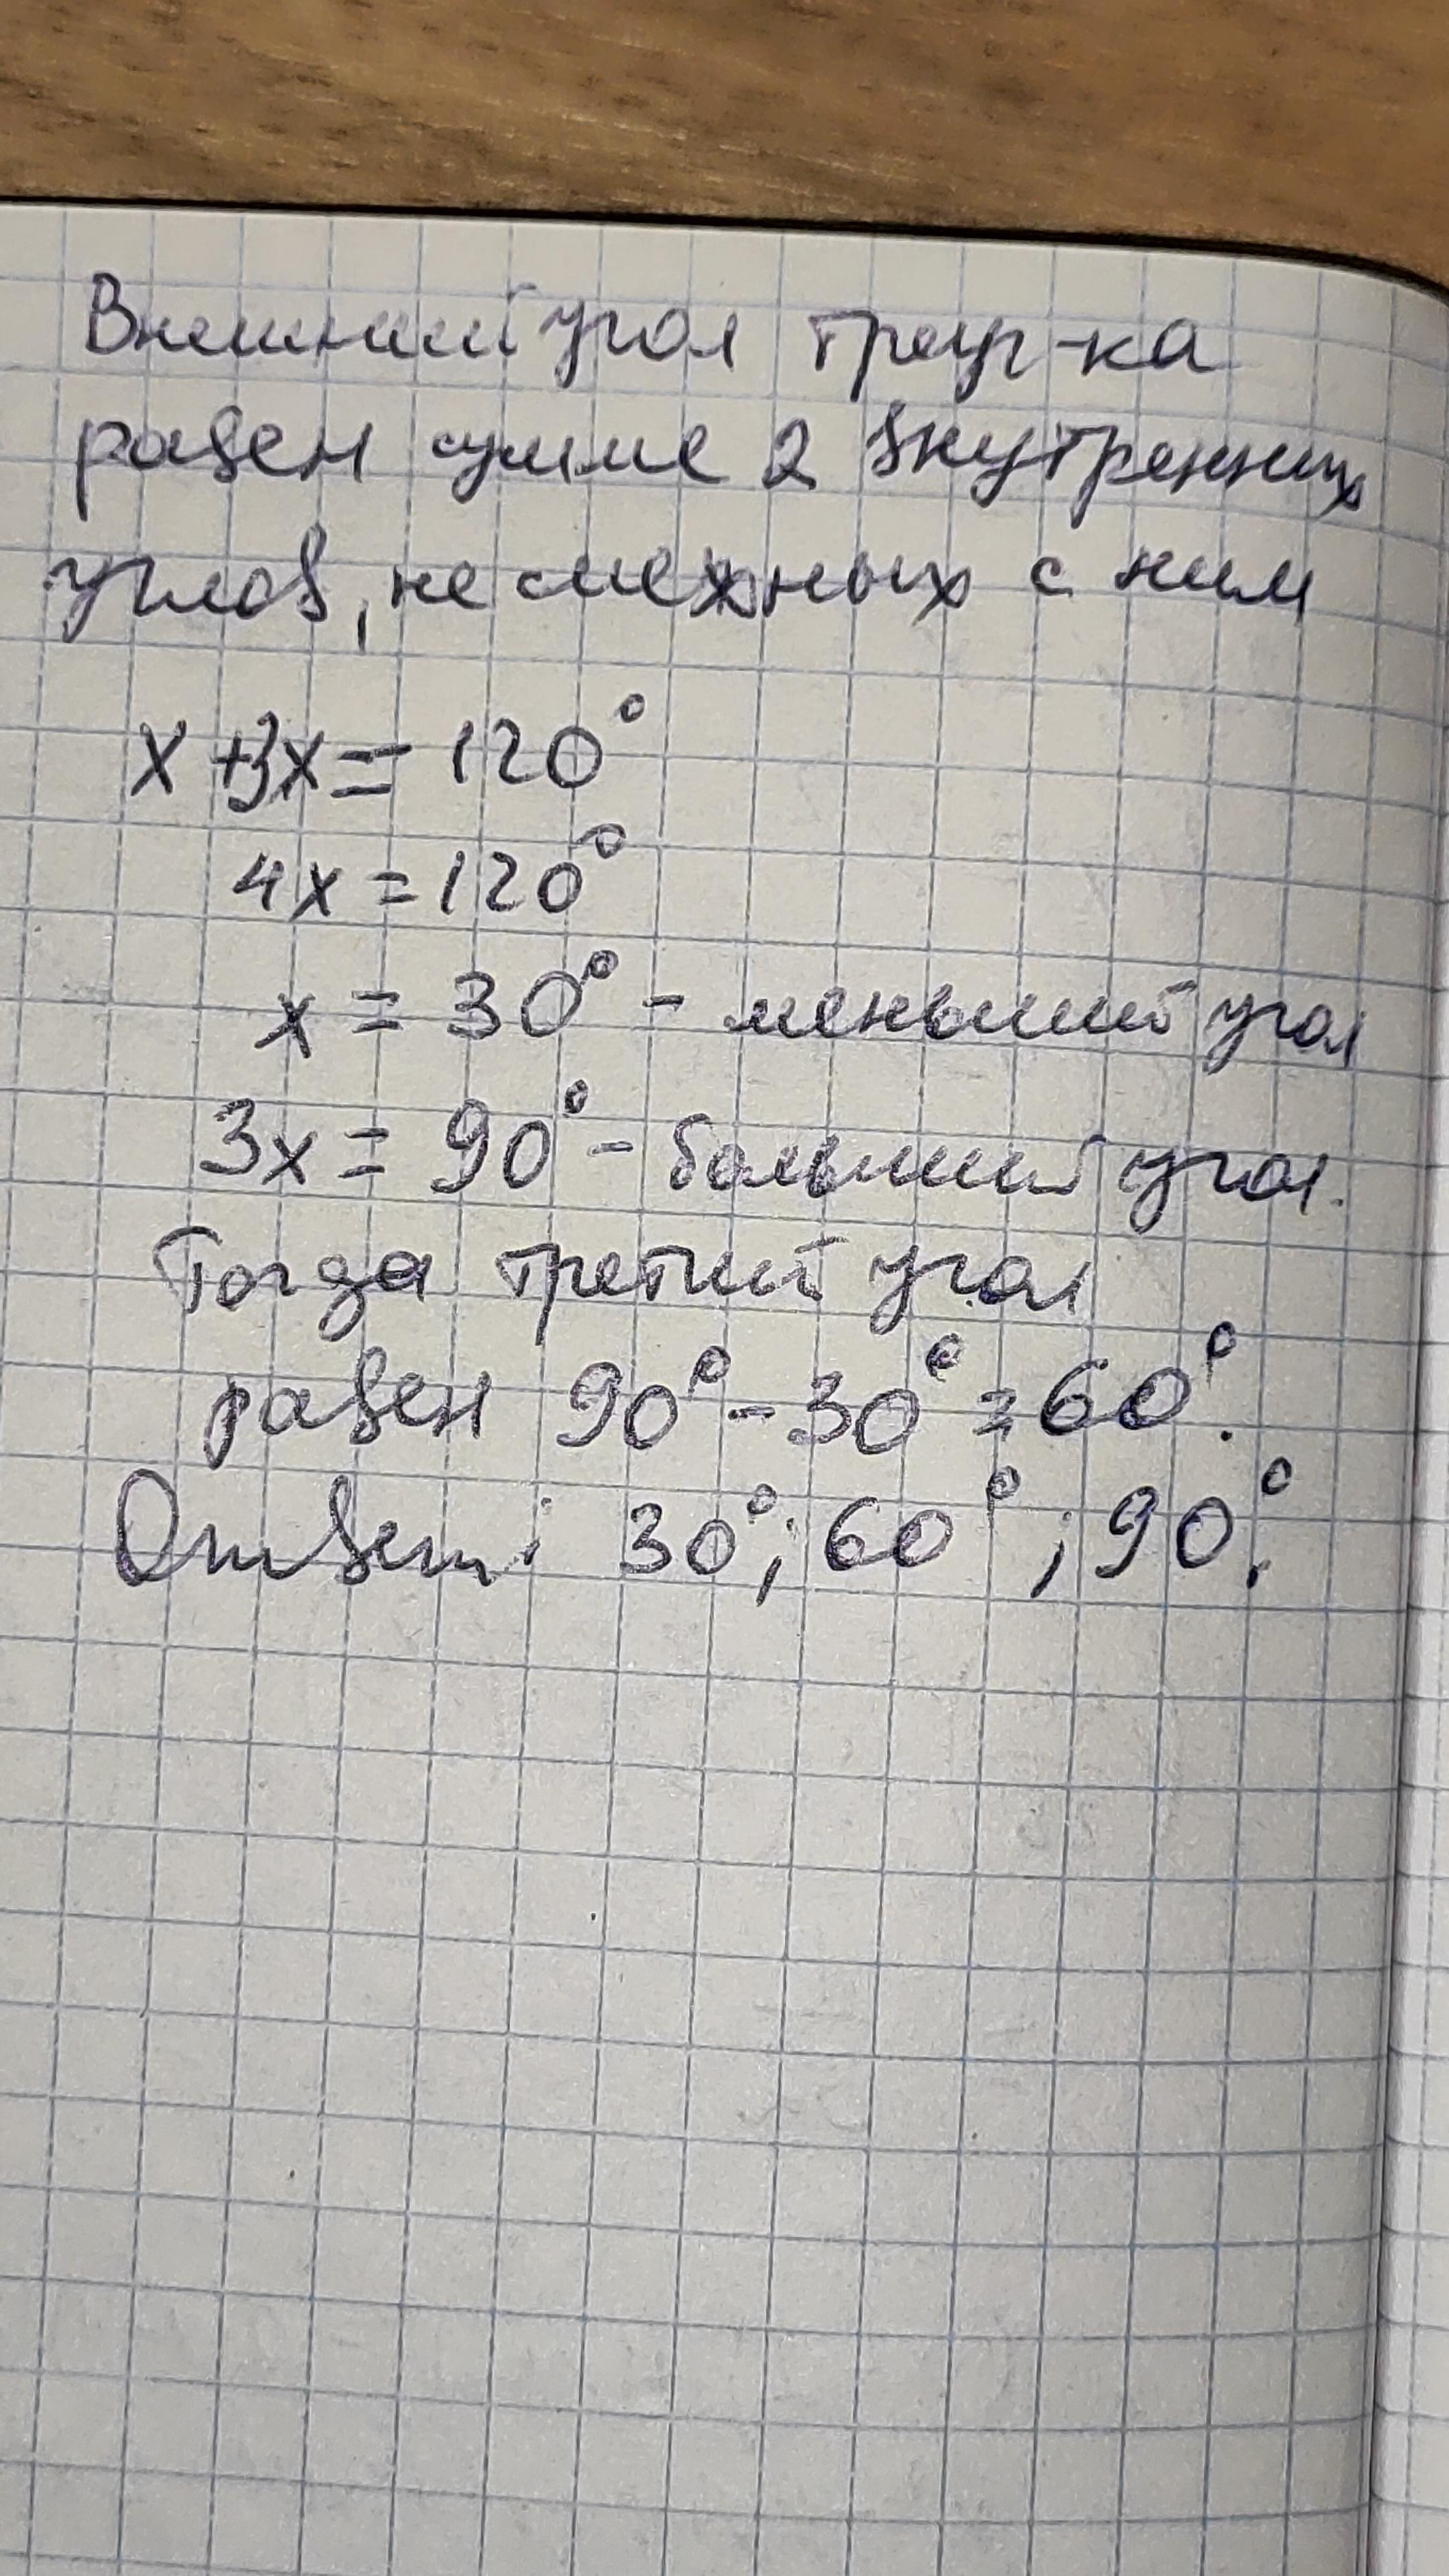 Внешний угол треуг-ка
равен сумме 2 внутренних
углов, не смежных с ним
x + 3x = 120°
4x = 120°
x = 30° - меньший угол
3x = 90° - больший угол.
Тогда третий угол
равен 90° - 30° = 60°.
Ответ: 30°; 60°; 90°.